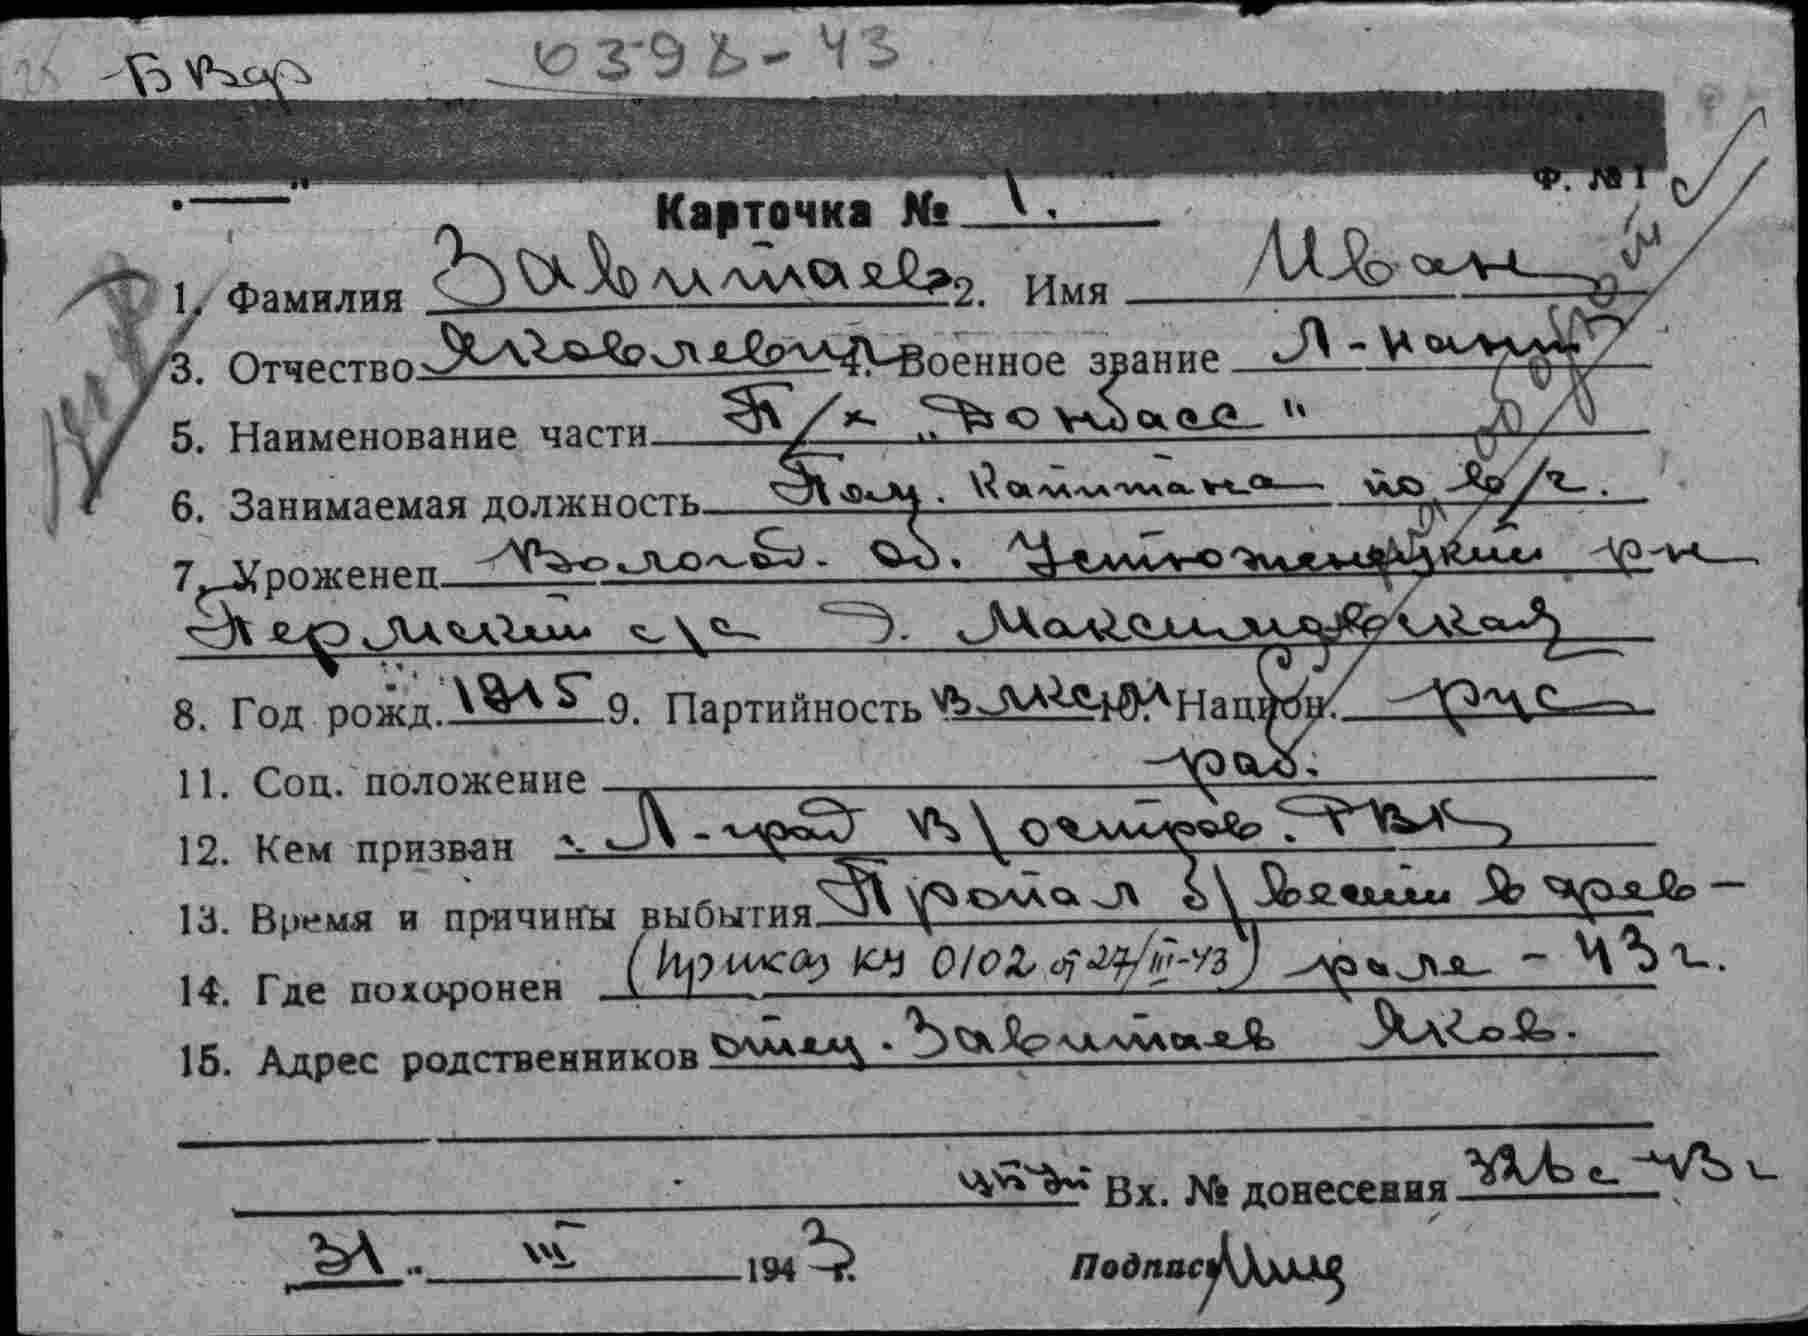 БВдр 0398-43
Ф. № 1
Карточка № 1.
1. Фамилия Завитаев 2. Имя Иван
3. Отчество Яковлевич 4. Военное звание Л-нант
5. Наименование части П/х „Донбасс"
6. Занимаемая должность Пом. Капитана по в/ч.
7. Уроженец Вологод. об. Устюженский р-н
Пермский с/с д. Максимовская
8. Год рожд. 1915 9. Партийность ВЛКСМ 10. Национ. рус
11. Соц. положение раб.
12. Кем призван Л-град В\остров. РВК
13. Время и причины выбытия Пропал б\вести в фев-
14. Где похоронен (Приказ КУ 0102 от 27/III-43) рале - 43 г.
15. Адрес родственников отец. Завитаев Яков.
Вх. № донесения 326с-43 г
31 " III 1943 г. Подпись